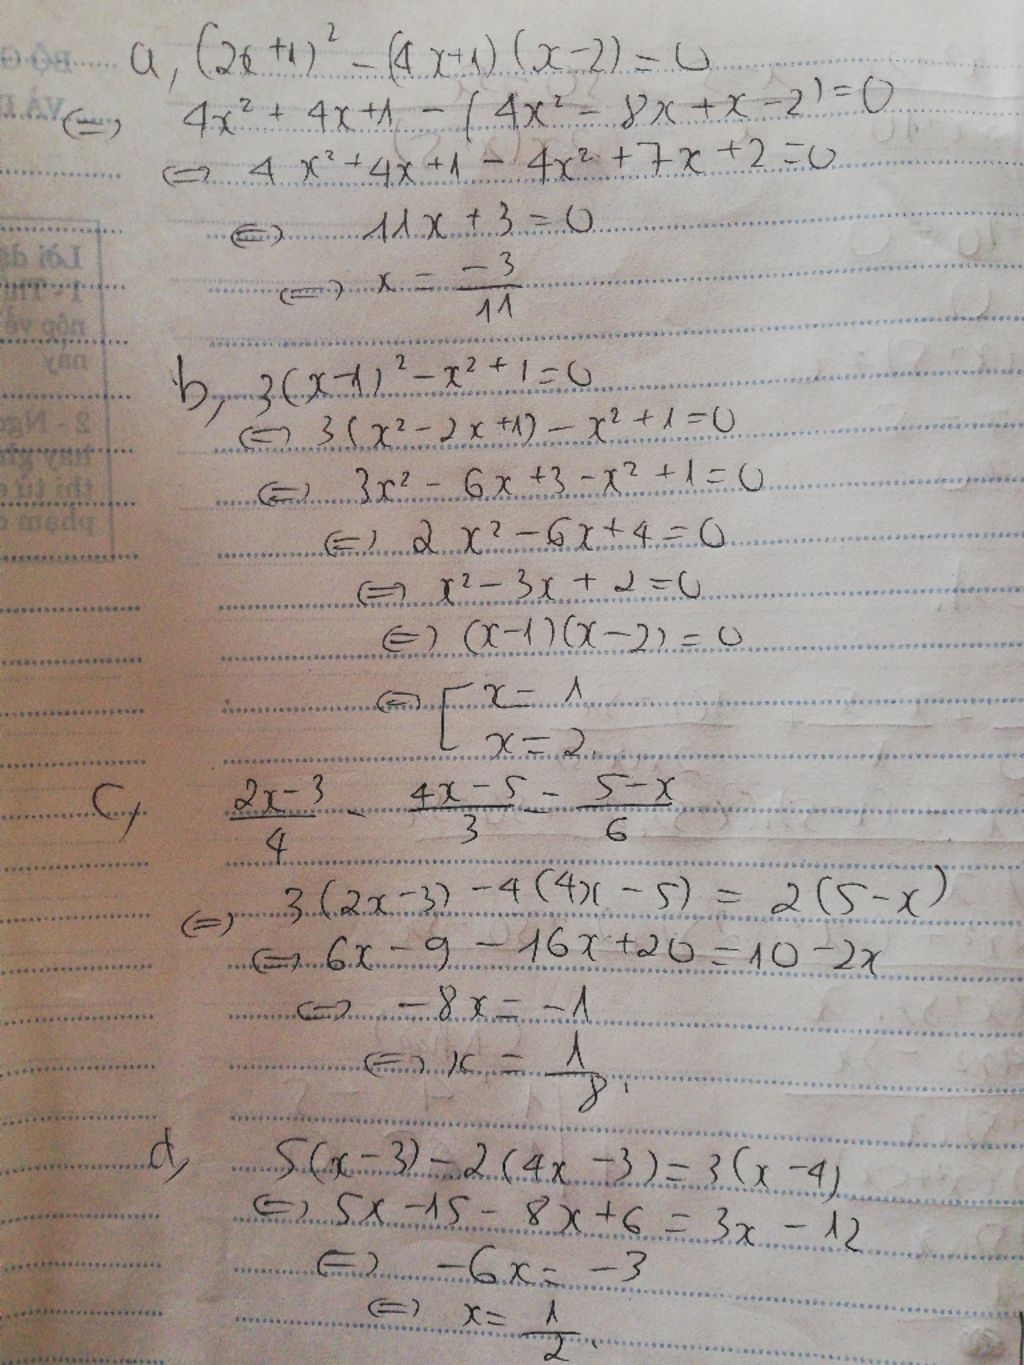 a, (2x+1)² - (4x+1)(x-2) = 0
⇔ 4x² + 4x+1 - (4x² - 8x + x - 2) = 0
⇔ 4x² + 4x+1 - 4x² + 7x + 2 = 0
⇔ 11x + 3 = 0
⇔ x = -3/11
b, 3(x-1)² - x² + 1 = 0
⇔ 3(x² - 2x+1) - x² + 1 = 0
⇔ 3x² - 6x + 3 - x² + 1 = 0
⇔ 2x² - 6x + 4 = 0
⇔ x² - 3x + 2 = 0
⇔ (x-1)(x-2) = 0
⇔ [ x = 1
x = 2.
c, (2x-3)/4 - (4x-5)/3 = (5-x)/6
⇔ 3(2x-3) - 4(4x-5) = 2(5-x)
⇔ 6x - 9 - 16x + 20 = 10 - 2x
⇔ -8x = -1
⇔ x = 1/8.
d, 5(x-3) - 2(4x-3) = 3(x-4)
⇔ 5x - 15 - 8x + 6 = 3x - 12
⇔ -6x = -3
⇔ x = 1/2.